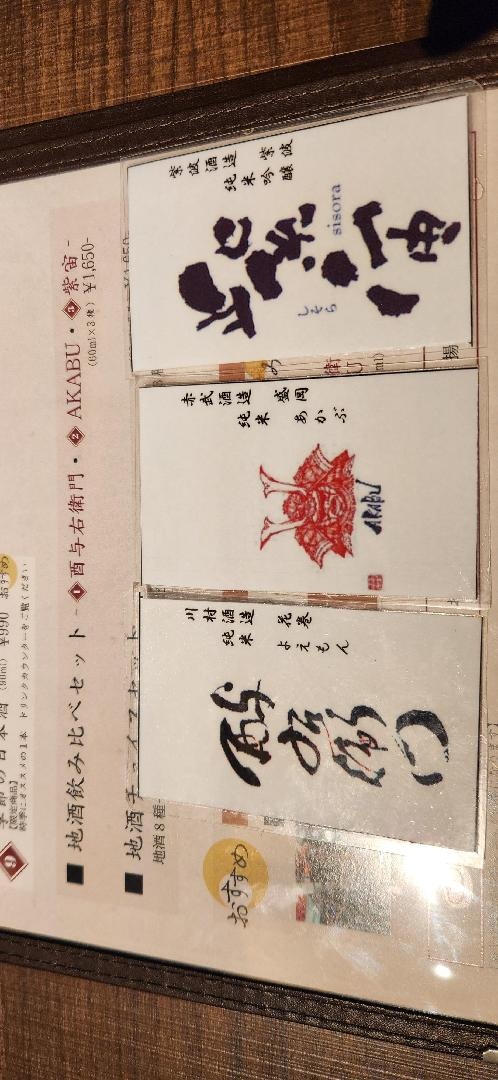 9
季節の日本酒 (90ml) ¥990 おすすめ
【限定商品】
時季にオススメの1本 ドリンクカウンターをご覧ください
■ 地酒飲み比べセット -1酉与右衛門・2 AKABU・3紫宙-
(60ml×3種) ¥1,650-
■ 地酒チョイスセット
¥1,650-
地酒8種
おすすめ
川村酒造 花巻
純米 よえもん
酉与右衛門
赤武酒造 盛岡
純米 あかぶ
AKABU
紫波酒造 紫波
純米吟醸
紫宙
sisora
しそら